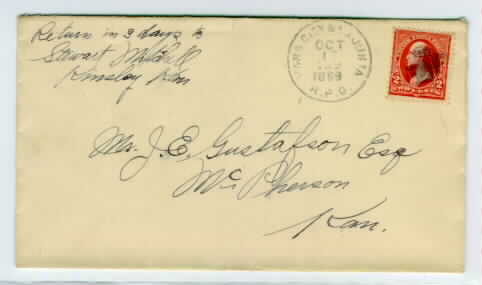 Return in 3 days to
Stewart Mitchell
Kinsley Kan
OCT
1
189
R.P.O.
2 2
Mr. J. E. Gustafson Esq
McPherson
Kan.